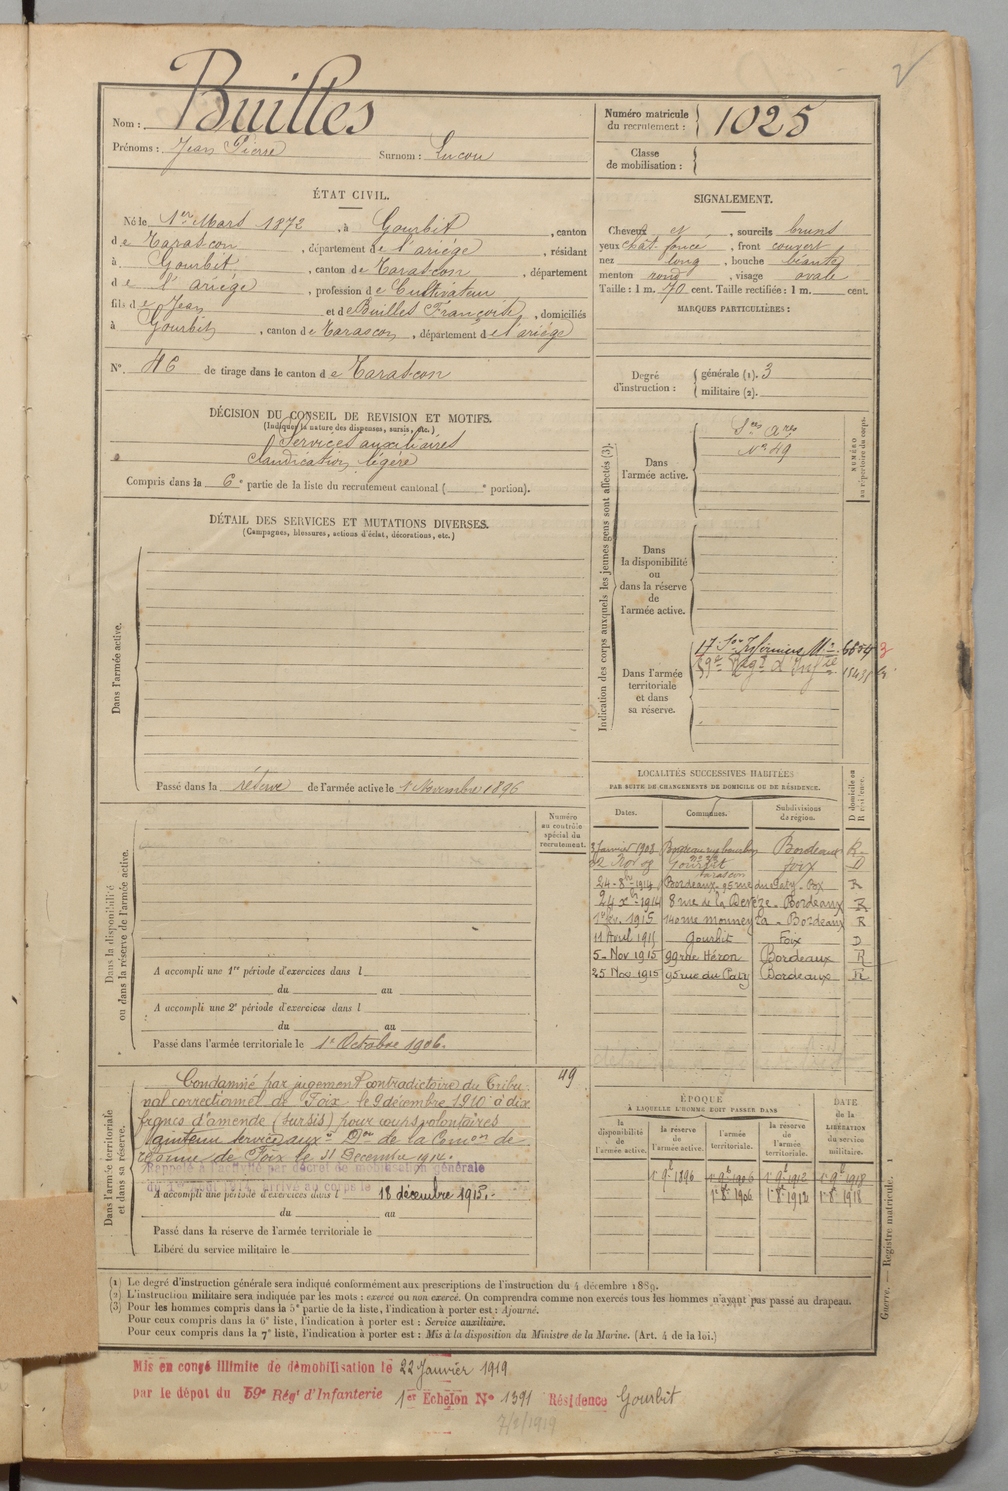 2
Nom : Builles
Prénoms : Jean Pierre Surnom : Lucou
Numéro matricule du recrutement : 1025
Classe de mobilisation :
ÉTAT CIVIL.
Né le 1er Mars 1872, à Gourbit, canton
de Tarascon, département de l'ariége, résidant
à Gourbit, canton de Tarascon, département
de l'ariége, profession de Cultivateur
fils de Jean et de Builles Françoise, domiciliés
à Gourbit, canton de Tarascon, département de l'ariége
N° 46 de tirage dans le canton de Tarascon
SIGNALEMENT.
Cheveux et, sourcils bruns
yeux chât. foncé, front couvert
nez long, bouche béante
menton rond, visage ovale
Taille : 1 m. 70 cent. Taille rectifiée : 1 m. cent.
MARQUES PARTICULIÈRES :
Degré d'instruction : générale (1). 3
militaire (2).
DÉCISION DU CONSEIL DE REVISION ET MOTIFS.
(Indiquer la nature des dispenses, sursis, etc.)
Services auxiliaires
claudication légère
Compris dans la 6e partie de la liste du recrutement cantonal ( e portion).
DÉTAIL DES SERVICES ET MUTATIONS DIVERSES.
(Campagnes, blessures, actions d'éclat, décorations, etc.)
Dans l'armée active.
Passé dans la réserve de l'armée active le 1 Novembre 1896
Indication des corps auxquels les jeunes gens sont affectés (3).
NUMÉRO au répertoire du corps.
Dans l'armée active.
Sces Ares
N° 49
Dans la disponibilité ou dans la réserve de l'armée active.
Dans l'armée territoriale et dans sa réserve.
17 Son Infirmiers Mre
59e Régt d'Infie
LOCALITÉS SUCCESSIVES HABITÉES
PAR SUITE DE CHANGEMENTS DE DOMICILE OU DE RÉSIDENCE.
Dates. Communes. Subdivisions de région. D domicile ou R résidence.
3 Janvier 1903 Bordeaux Bordeaux R
22 Nov 09 Gourbit Tarascon Foix D
24-8bre-1914 Bordeaux 95 rue du Paty-Box R
24 Xbre-1914 8 rue de la Devèze - Bordeaux R
1915 140 rue Mouneyra - Bordeaux R
11 Avril 1915 Gourbit Foix D
5-Nov 1915 99 rue Héron Bordeaux R
25 Nov 1915 95 rue du Paty Bordeaux R
Dans la disponibilité ou dans la réserve de l'armée active.
Numéro au contrôle spécial du recrutement.
A accompli une 1re période d'exercices dans l
du au
A accompli une 2e période d'exercices dans l
du au
Passé dans l'armée territoriale le 1er Octobre 1906.
Dans l'armée territoriale et dans sa réserve.
49
Condamné par jugement contradictoire du Tribu-
nal correctionnel de Foix le 9 décembre 1910 à dix
francs d'amende (sursis) pour coups volontaires
Maintenu service auxre Don de la Comon de
réforme de Foix le 31 Décembre 1914.
Rappelé à l'activité par décret de mobilisation générale
du 1er août 1914, arrivé au corps le
18 décembre 1915.
A accompli une période d'exercices dans l
du au
Passé dans la réserve de l'armée territoriale le
Libéré du service militaire le
ÉPOQUE
À LAQUELLE L'HOMME DOIT PASSER DANS
la disponibilité de l'armée active. la réserve de l'armée active. l'armée territoriale. la réserve de l'armée territoriale. DATE de la LIBÉRATION du service militaire.
1er 9bre 1896 1er 9b 1906 1er 9b 1912 1er 9b 1918
1er 8b 1906 1er 8b 1912 1er 8b 1918
Guerre. — Registre matricule. 1
(1) Le degré d'instruction générale sera indiqué conformément aux prescriptions de l'instruction du 4 décembre 1889.
(2) L'instruction militaire sera indiquée par les mots : exercé ou non exercé. On comprendra comme non exercés tous les hommes n'ayant pas passé au drapeau.
(3) Pour les hommes compris dans la 5e partie de la liste, l'indication à porter est : Ajourné.
Pour ceux compris dans la 6e liste, l'indication à porter est : Service auxiliaire.
Pour ceux compris dans la 7e liste, l'indication à porter est : Mis à la disposition du Ministre de la Marine. (Art. 4 de la loi.)
Mis en congé illimité de démobilisation le 22 Janvier 1919
par le dépôt du 59e Régt d'Infanterie 1er Echelon N° 1391 Résidence Gourbit
7/3/1919